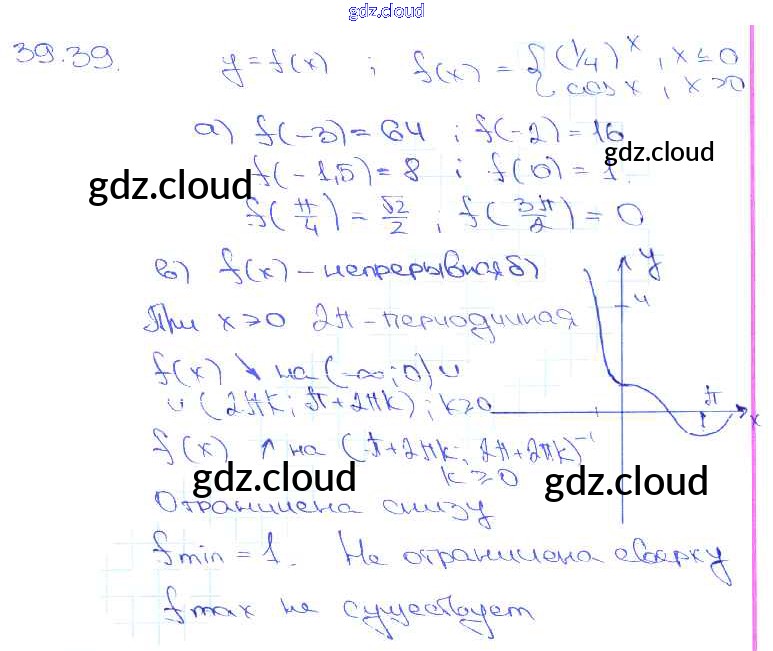 gdz.cloud
39.39. y=f(x) ; f(x) = { (1/4)^x, x ≤ 0
cos x, x > 0
а) f(-3)=64 ; f(-2)=16
gdz.cloud
f(-1,5)=8 ; f(0)=1.
gdz.cloud
f(π/4)=√2/2 ; f(3π/2)=0
в) f(x) - непрерывная б)
y
4
При x>0 2π-периодичная
f(x) ↘ на (-∞;0) ∪
∪ (2πk; π+2πk); k≥0
π
x
-1
f(x) ↗ на (π+2πk; 2π+2πk)
k ≥ 0
gdz.cloud
gdz.cloud
Ограничена снизу
fmin = 1. Не ограничена сверху
fmax не существует